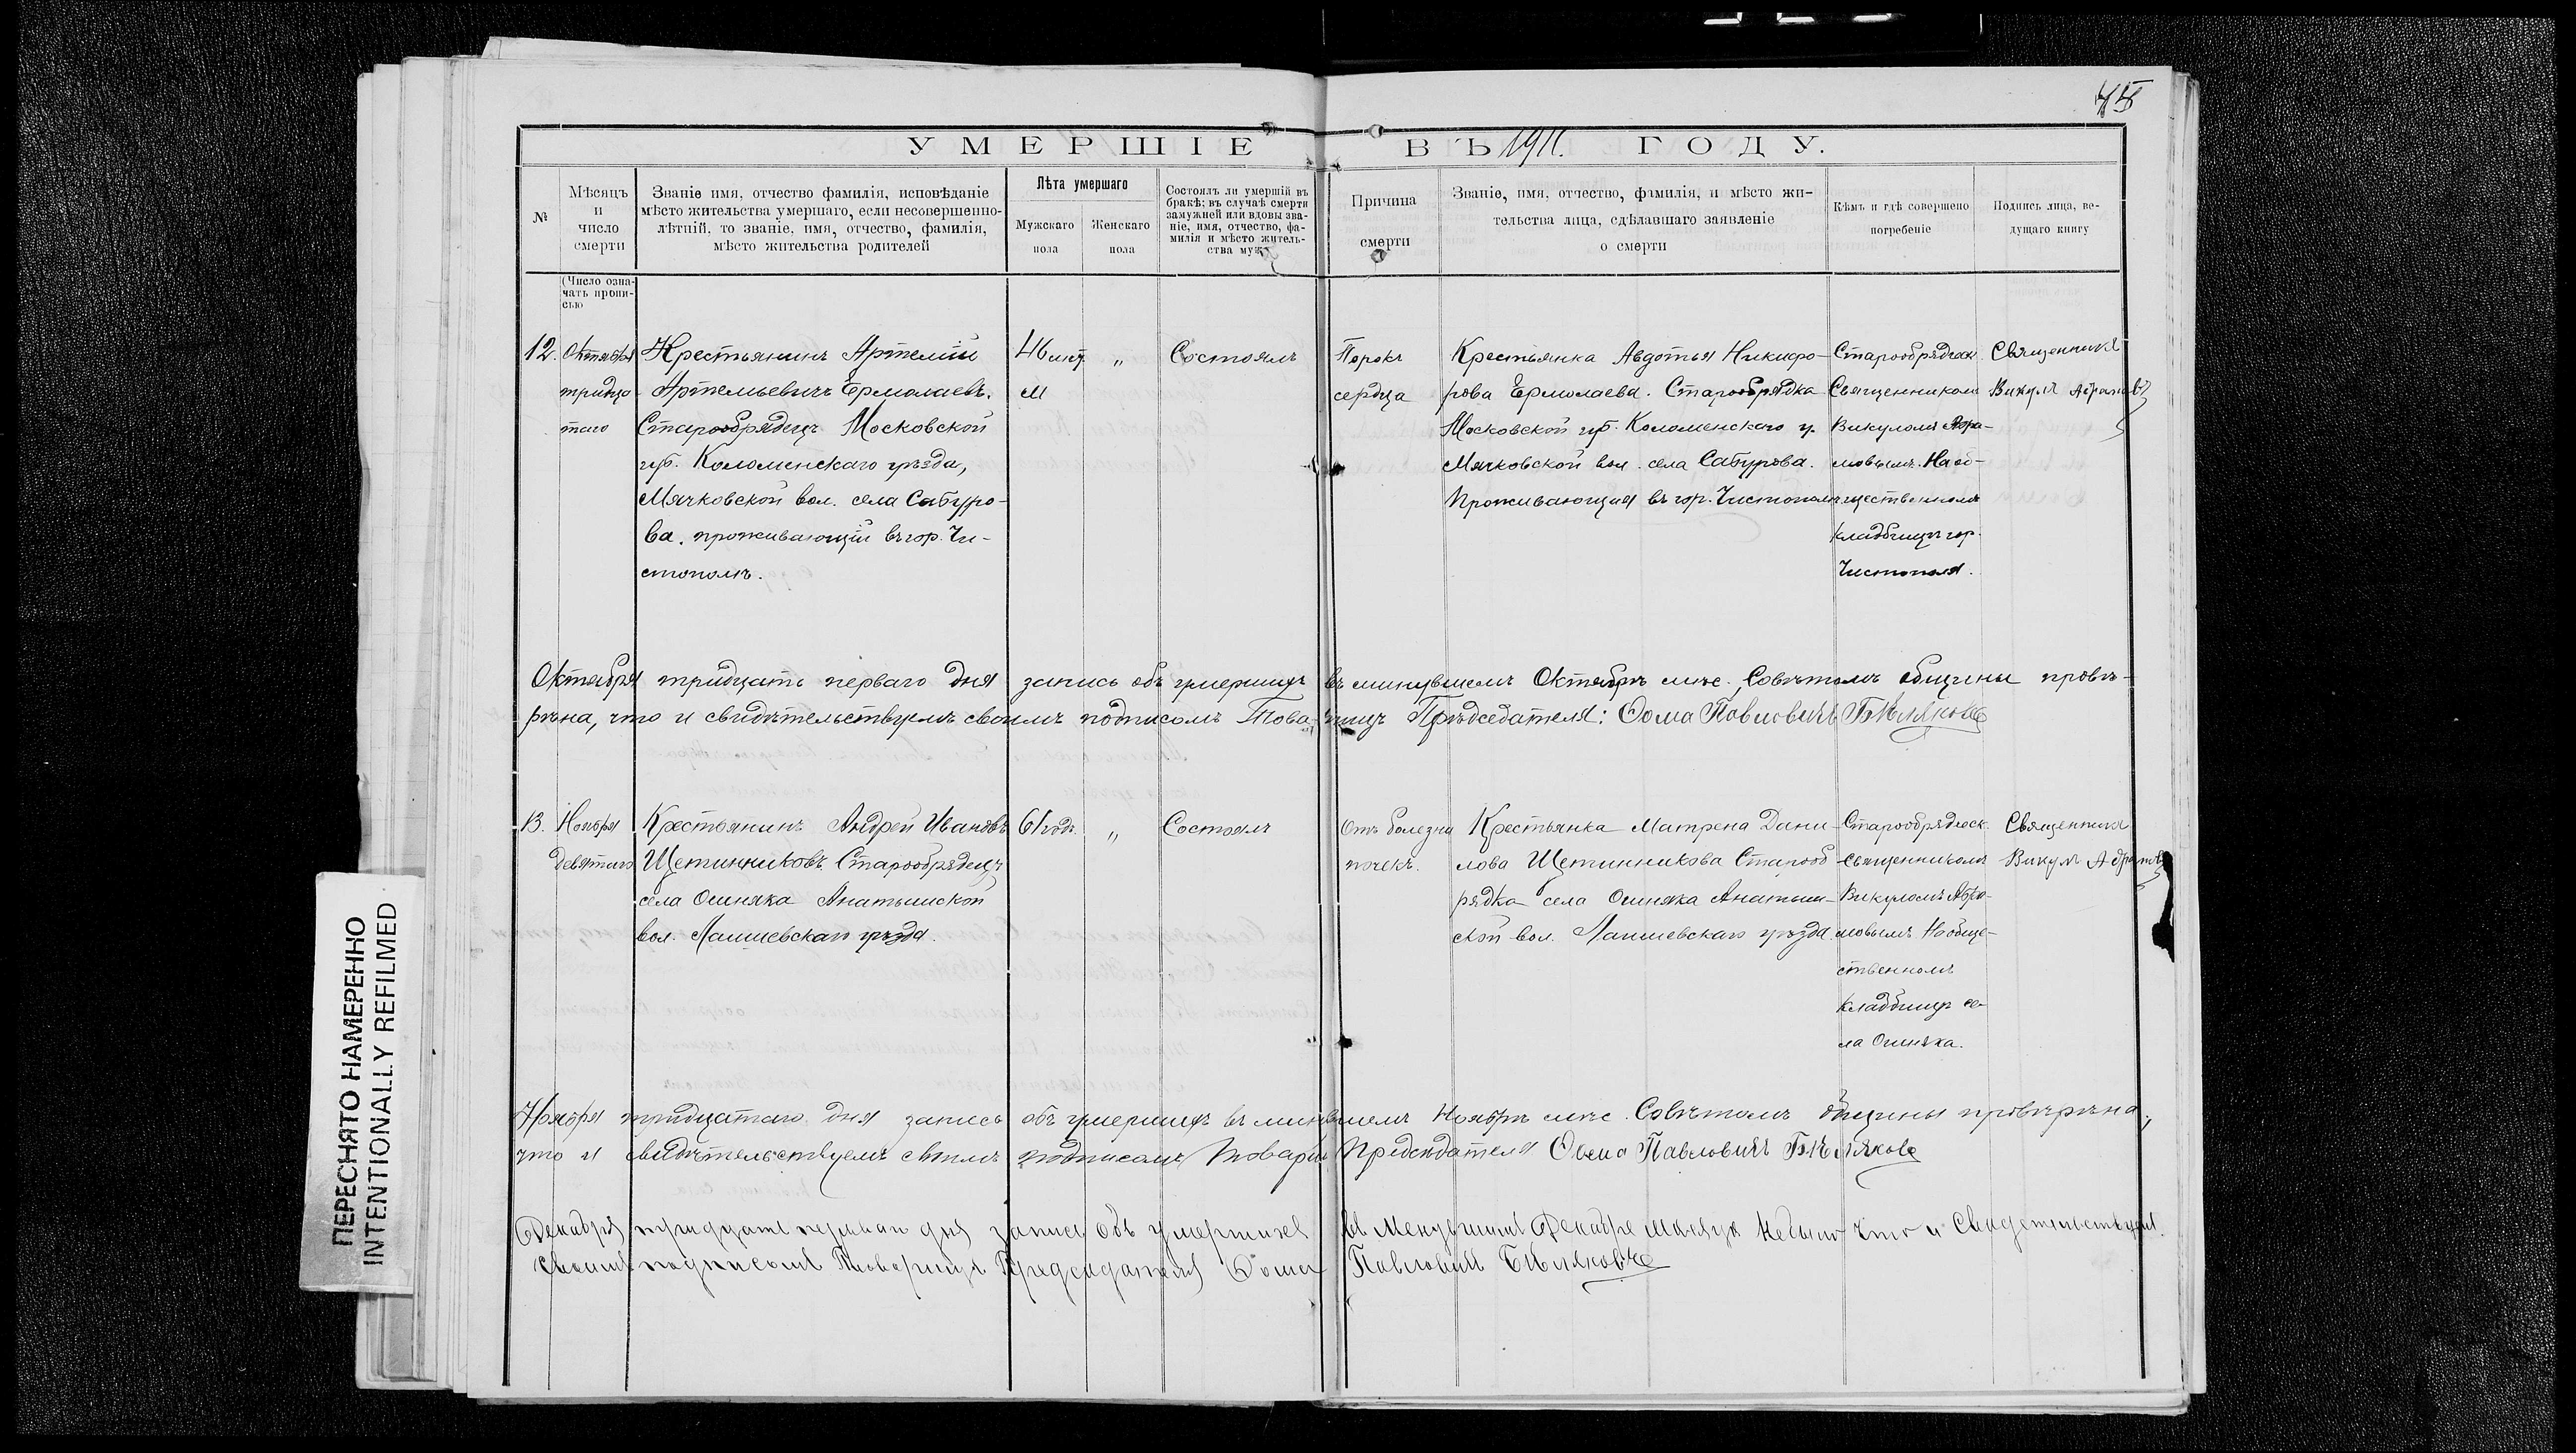 45
УМЕРШІЕ ВЪ 1911. ГОДУ.
№
Мѣсяцъ
и
число
смерти
Званіе имя, отчество фамилія, исповѣданіе
мѣсто жительства умершаго, если несовершенно-
лѣтній, то званіе, имя, отчество, фамилія,
мѣсто жительства родителей
Лѣта умершаго
Мужскаго
пола
Женскаго
пола
Состоялъ ли умершій въ
бракѣ; въ случаѣ смерти
замужней или вдовы зва-
ніе, имя, отчество, фа-
милія и мѣсто житель-
ства мужа
Причина
смерти
Званіе, имя, отчество, фамилія, и мѣсто жи-
тельства лица, сдѣлавшаго заявленіе
о смерти
Кѣмъ и гдѣ совершено
погребеніе
Подпись лица, ве-
дущаго книгу
(Число озна-
чать пропи-
сью
12.
Октября
тридца
таго
Крестьянинъ Артемій
Артемьевичъ Ермолаевъ.
Старообрядецъ Московской
губ. Коломенскаго уѣзда,
Мячковской вол. села Сабуро-
ва. проживающій въ гор. Чи-
стополѣ.
46 лѣт
"
Состоялъ
Порокъ
сердца
Крестьянка Авдотья Никифо-
рова Ермолаева. Старообрядка
Московской губ. Коломенскаго у.
Мячковской вол. села Сабурова.
Проживающая въ гор. Чистополѣ
Старообрядческ
Священникомъ
Викуломъ Абра-
мовымъ. На об-
щественномъ
кладбищѣ гор.
Чистополя.
Священникъ
Викулъ Абрамовъ
Октября тридцать перваго дня запись объ умершихъ въ минувшемъ Октябрѣ мѣс. Совѣтомъ общины провѣ-
рѣна, что и свидѣтельствуемъ своимъ подписомъ Това-рищъ Прѣдседателя: Ѳома Павловичъ Бѣляковъ
13.
Ноября
девятаго
Крестьянинъ Андрей Ивановъ
Щетинниковъ. Старообрядецъ
села Ошняка Анатышской
вол. Лаишевскаго уѣзда.
61 годъ.
"
Состоялъ
Отъ болезни
почекъ.
Крестьянка Матрена Дани-
лова Щетинникова Старооб
рядка села Ошняка Анатыш-
ской вол. Лаишевскаго уѣзда.
Старообрядческ.
священникомъ
Викуломъ Абра-
мовымъ На обще-
ственномъ
кладбищѣ се-
ла Ошняка.
Священникъ
Викулъ Абрамовъ
Ноября тридцатаго дня запись объ умершихъ въ минувшемъ Ноябрѣ мѣс. Совѣтомъ общины провѣрѣна,
что и свидѣтельствуемъ своимъ подписомъ Товарищ Предсѣдателя Ѳома Павловичъ Бѣляковъ
Декабря тридцать перваго дня запись объ умершихъ въ Менувшимъ Декабре месяце небыло что и Свидетельствуемъ.
Своимъ подписомъ Товарищъ Председателя Ѳома Павловичъ Бѣляковъ
ПЕРЕСНЯТО НАМЕРЕННО
INTENTIONALLY REFILMED